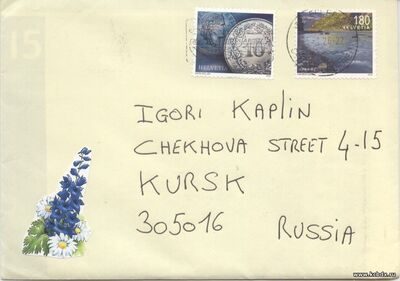 15
HELVETIA
10
180
HELVETIA
IGORI KAPLIN
CHEKHOVA STREET 4-15
KURSK
305016
RUSSIA
www.kcbdx.ru